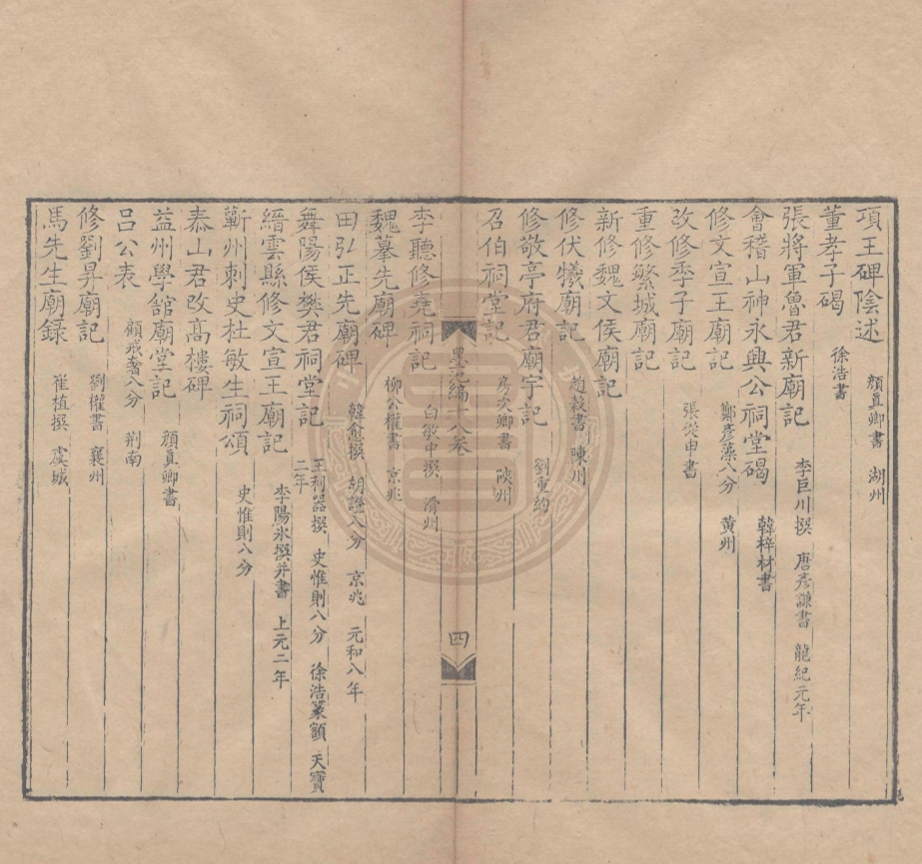 項王碑陰述 顔真卿書 湖州
董孝子碣 徐浩書
張將軍魯君新廟記 李巨川撰 唐彥謙書 龍紀元年
會稽山神永興公祠堂碣 韓梓材書
修文宣王廟記 鄭彥藻八分 黄州
改修季子廟記 張從申書
重修繁城廟記
新修魏文侯廟記
修伏犧廟記 趙榖書 陳州
修敬亭府君廟宇記 劉重約
召伯祠堂記 房次卿書 陝州
墨池編十八卷 四
李聽修堯祠記 白敏中撰 滑州
魏摹先廟碑 柳公權書 京兆
田弘正先廟碑 韓愈撰 胡證八分 京兆 元和八年
舞陽侯樊君祠堂記 王利器撰 史惟則八分 徐浩篆額 天寶二年
縉雲縣修文宣王廟記 李陽氷撰并書 上元二年
蘄州刺史杜敏生祠頌 史惟則八分
泰山君改高樓碑
益州學舘廟堂記 顔真卿書
吕公表 顧戒奢八分 荆南
修劉昇廟記 劉權書 襄州
馬先生廟録 崔植撰 虞城